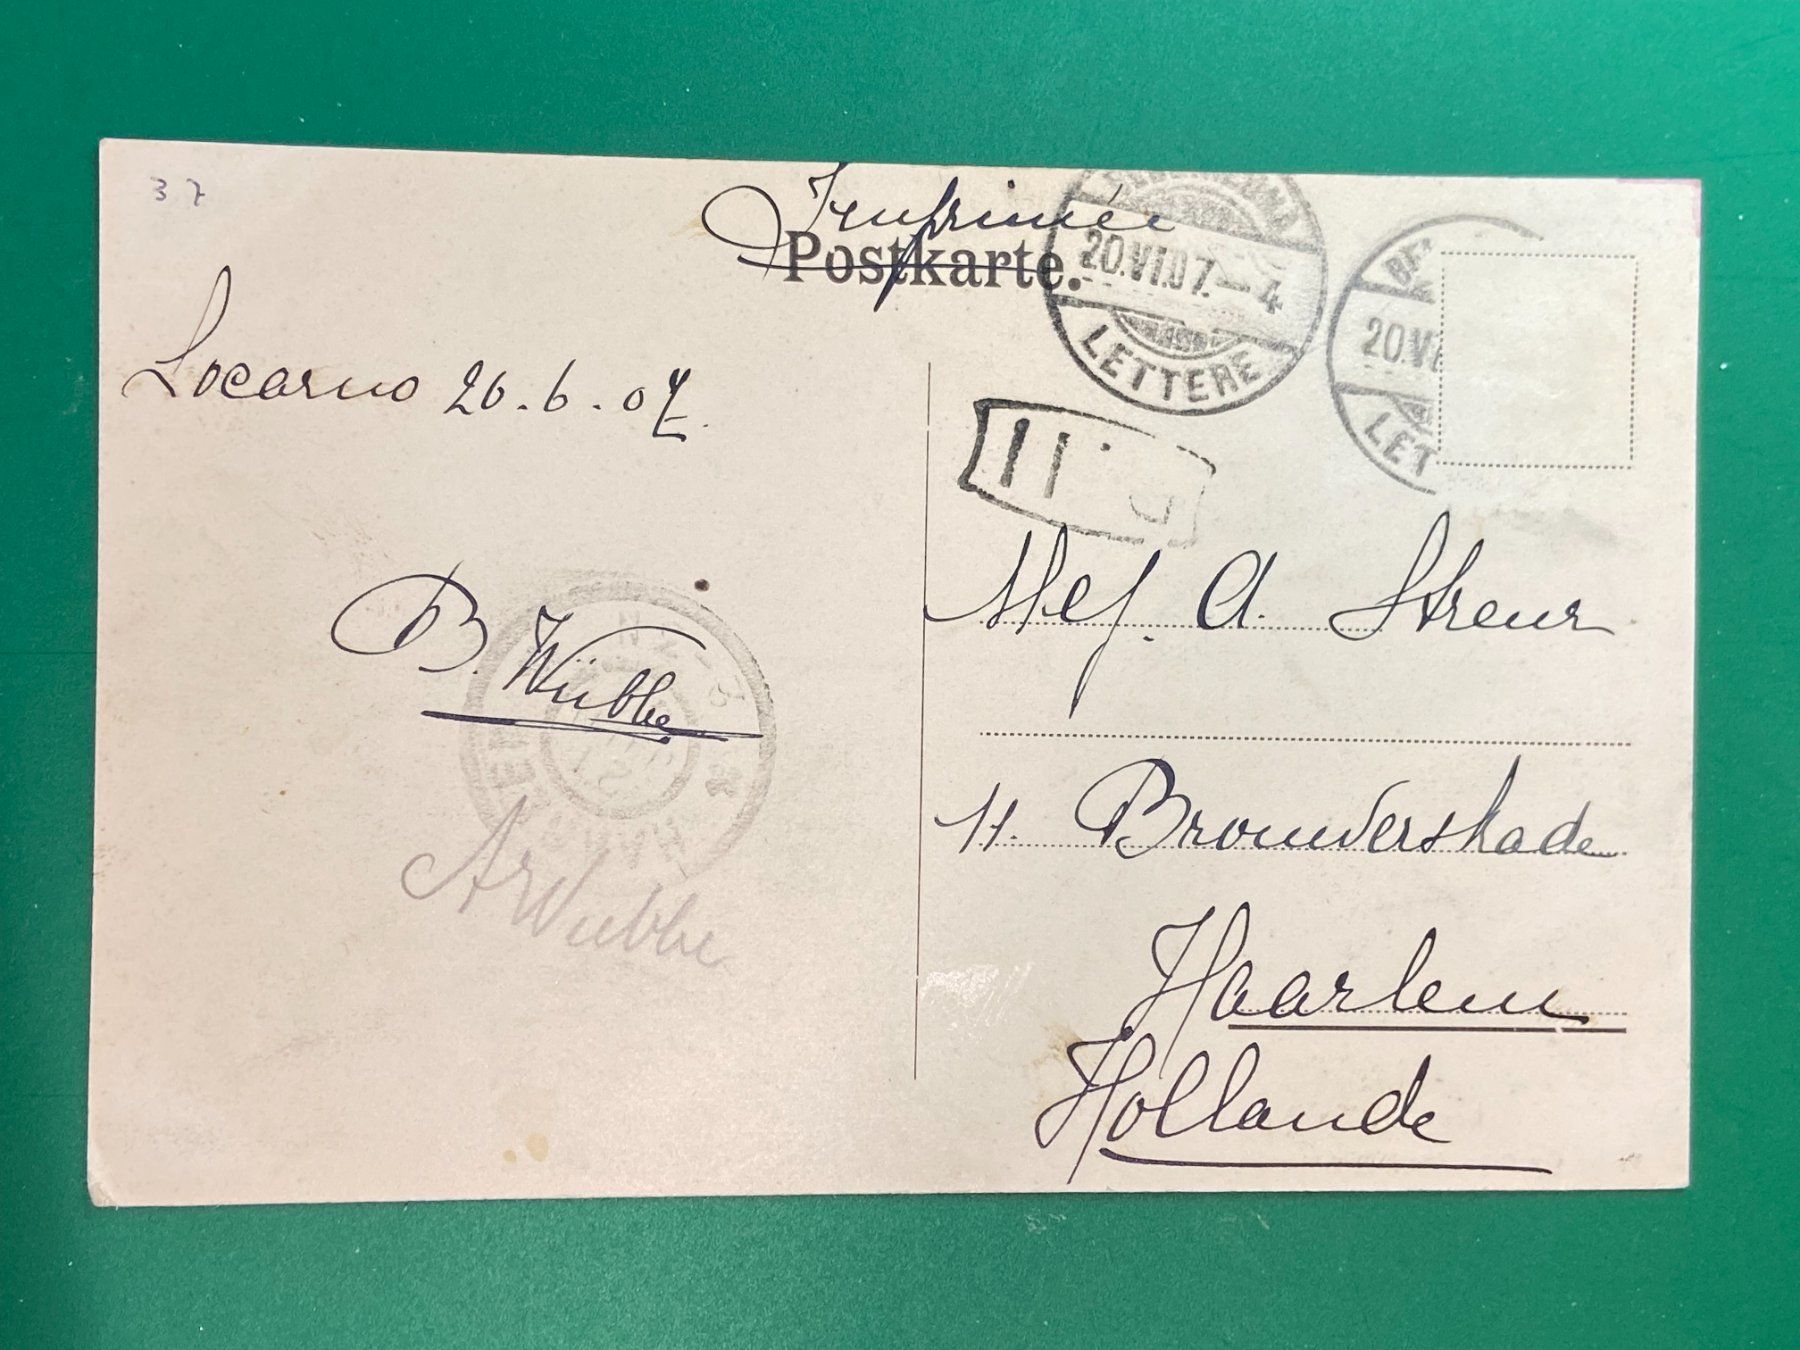 37
Imprimée
Postkarte.
20.VI.07.—4
LETTERE
20.VI
LET
Locarno 20.6.07.
11
Mej. A. Streur
B. Wübbe
11. Brouwerskade
AWubbe
Haarlem
Hollande